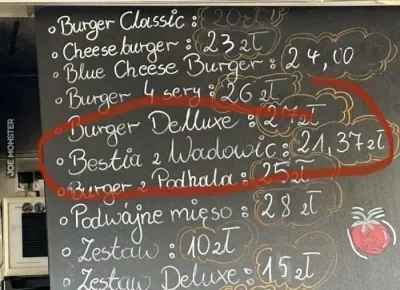 Burger Classic : 20zł
Cheeseburger : 23zł
Blue Cheese Burger : 24,00
Burger 4 sery : 26zł
Burger DeLluxe : 27zł
Bestia z Wadowic : 21,37zł
Burger z Podhala : 25zł
Podwójne mięso : 28zł
Zestaw : 10zł
Zestaw Deluxe : 15zł
JOE MONSTER